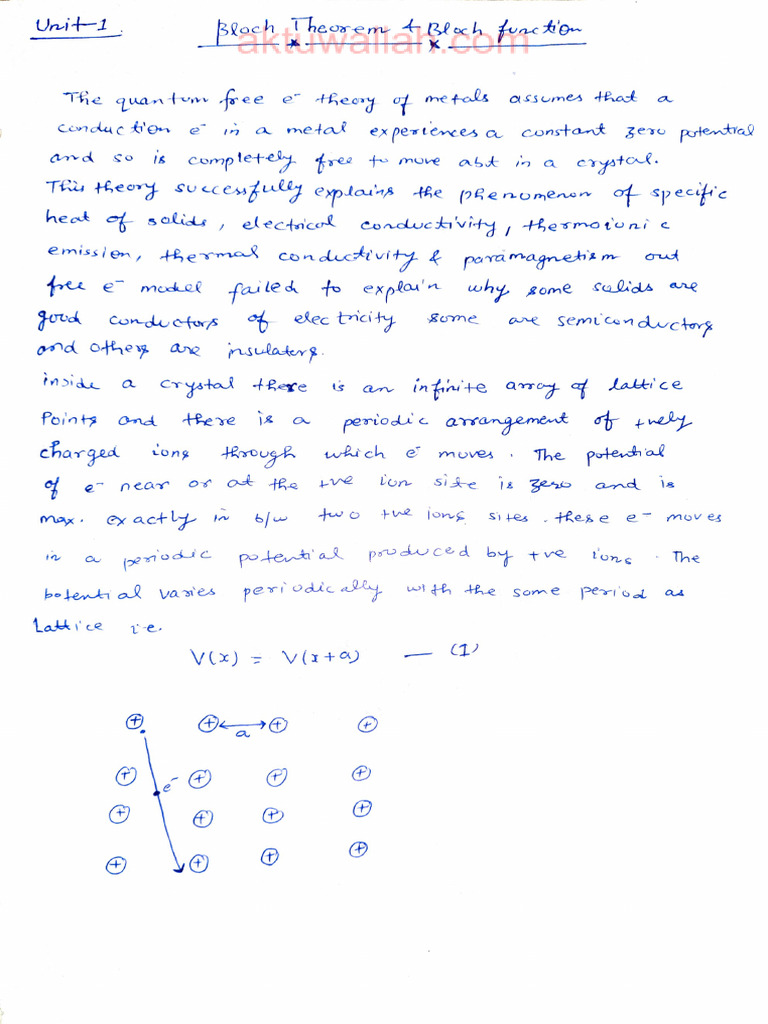 Unit-1.
Bloch Theorem & Bloch function
aktuwallah.com
The quantum free e⁻ theory of metals assumes that a
conduction e⁻ in a metal experiences a constant zero potential
and so is completely free to move abt in a crystal.
This theory successfully explains the phenumenon of specific
heat of solids, electrical conductivity, thermoiunic
emission, thermal conductivity & paramagnetism out
free e⁻ model failed to explain why some solids are
good conductors of electricity some are semiconductors
and others are insulaters.
inside a crystal there is an infinite array of lattice
Points and there is a periodic arrangement of +vely
charged ions through which e⁻ moves. The potential
of e⁻ near or at the +ve ion site is zero and is
max. exactly in b/w two +ve ions sites. these e⁻ moves
in a periodic potential produced by +ve ions. The
potential varies periodically with the same period as
Lattice i.e.
V(x) = V(x+a) — (1)
+ + + +
a
+ + + +
e⁻
+ + + +
+ + + +